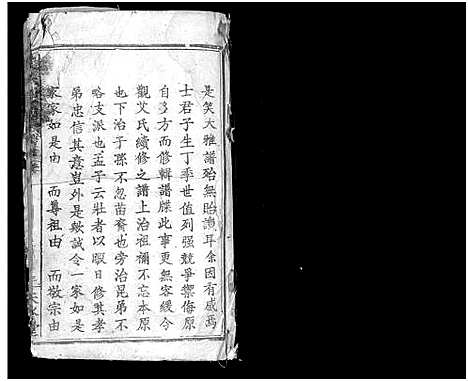 是笑大雅譜殆無貽譏耳余因有感焉
士君子生丁季世值列强競爭禦侮原
自多方而修輯譜牒此事更無容緩今
觀艾氏續修之譜上治祖禰不忘本原
也下治子孫不忽苗裔也旁治昆弟不
略支派也孟子云壯者以暇日修其孝
弟忠信其意豈外是歟誠令一家如是
家家如是由 而尊祖由 而敬宗由